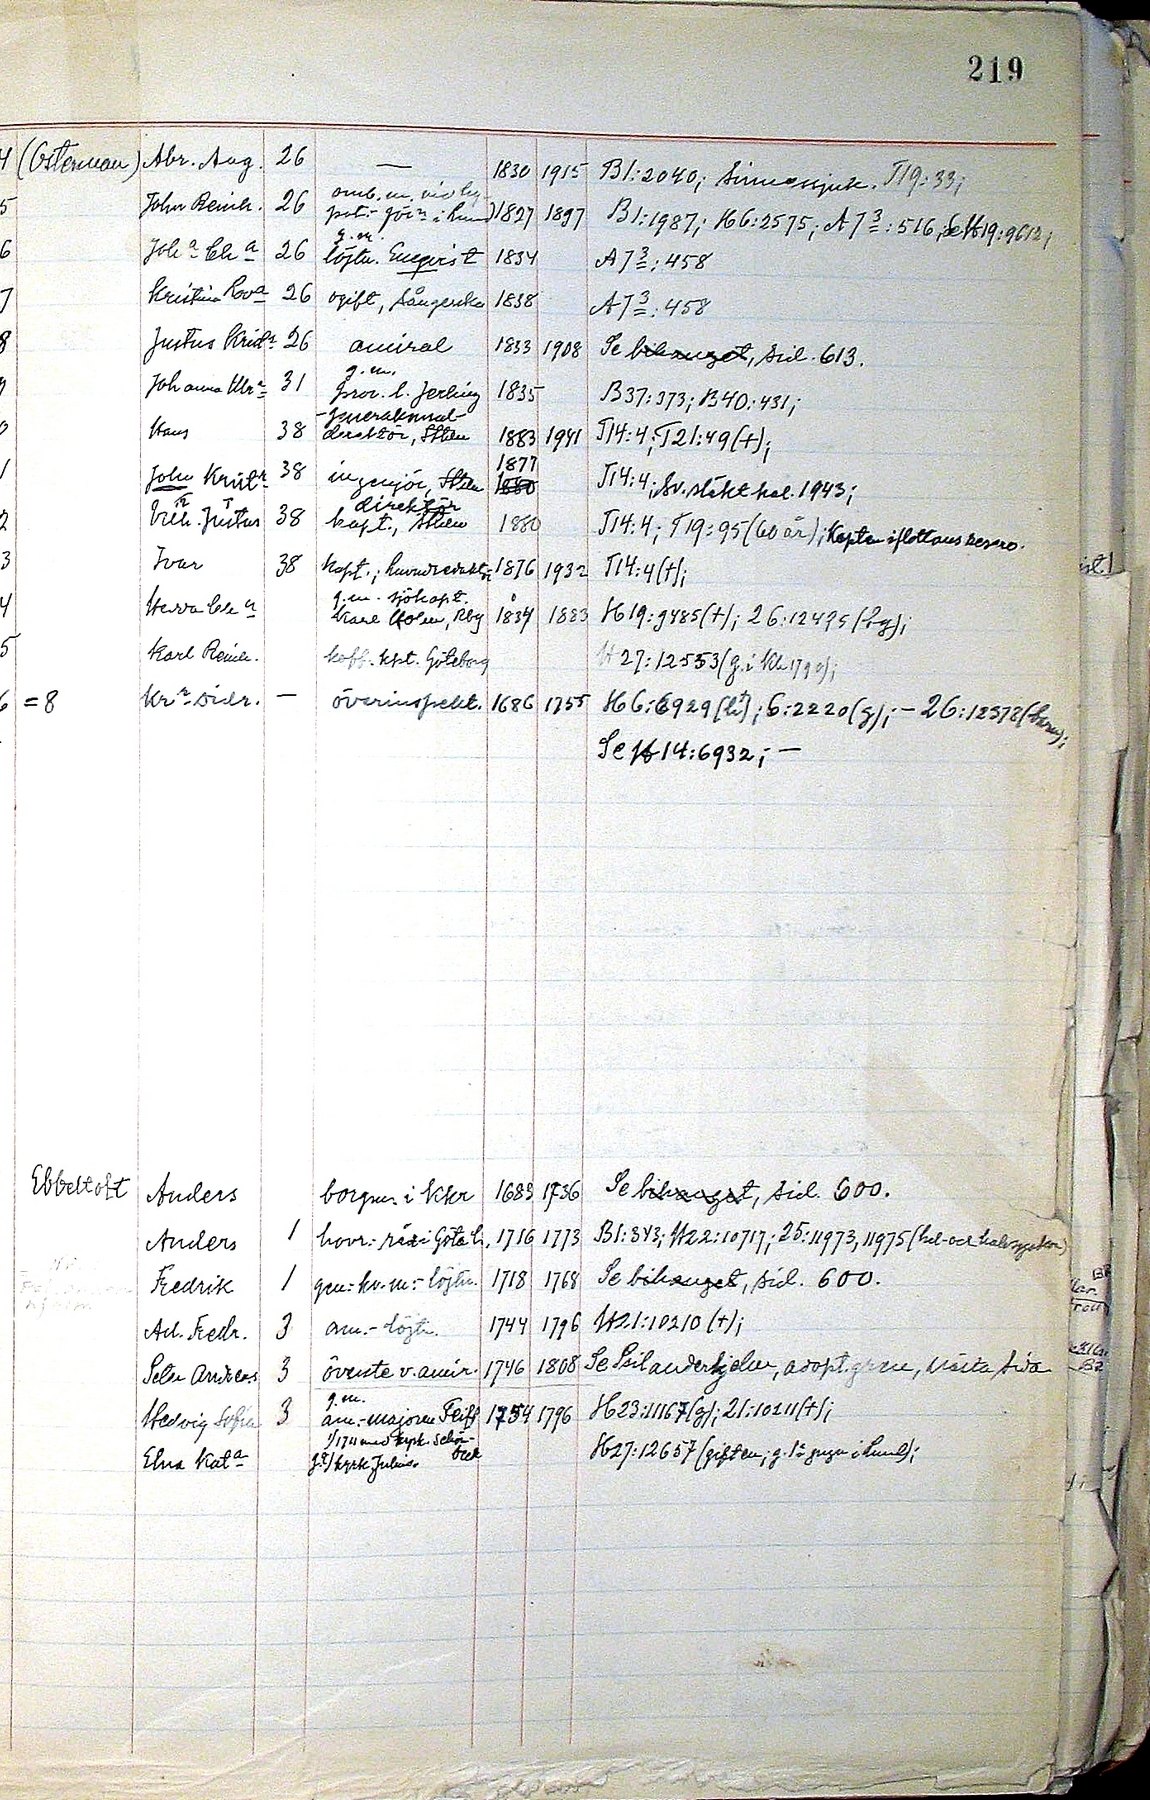 219
4 (Osterman) Abr. Aug. 26 — 1830 1915 B1:2040; Sinnessjuk. T19:33;
5 John Reinh. 26 1827 1897 B1:1987; H6:2575; A7 3:516; Se H19:9612;
g.m.
6 Joh a Ch a 26 löjtn. Enqvist 1834 A7 3:458
7 Kristina Lova 26 ogift, sångerska 1838 A7 3:458
8 Justus Krist r 26 amiral 1833 1908 Se bihanget, sid. 613.
g.m.
9 Johanna Ulr a 31 prov. l. Jerling 1835 B37:373; B40:431;
Hans 38 direktör, Sthlm 1883 1941 T14:4; T21:49(+);
1877
1 John Krist r 38 ingenjör, Sthlm 1880 T14:4; Sv. släktkal. 1943;
direktör
2 Vilh. Justus 38 kapt., Sthlm 1880 T14:4; T19:95 (60 år); Kapten i flottans reserv.
3 Ivar 38 kapt.; huvudredaktr 1876 1932 T14:4(+);
g.m. sjökapt.
4 Karl Holm, Rby 1834 1883 H19:9485(+); 26:12495
5 Karl Reinh. koff. kpt. Göteborg H27:12553 (g. i Kka 1790);
6 = 8 Kr r Didr. — överinspekt. 1686 1755 H6:6929; 6:2220(g); — 26:12372
Se H14:6932; —
Ebbeltoft Anders borgm. i Kkr 1683 1736 Se bihanget, sid. 600.
Anders 1 hovr.-råd i Göta h. 1716 1773 B1:343; H22:10717; 25:11973, 11975 (hel- och halvsyskon)
Fredrik 1 gen.-kv.m.-löjtn. 1718 1768 Se bihanget, sid. 600.
Ad. Fredr. 3 am.-löjtn. 1744 1796 H21:10210(+);
Peter Andreas 3 överste v. amir. 1746 1808 Se Psilanderhjelm, adopt. gren, nästa sida
g.m.
Hedvig Sofia 3 am.-majoren Feiff 1754 1796 H23:11167(g); 21:10211(+);
Elna Kat a H27:12657 (giften; g. 1:a ggn i Lund);